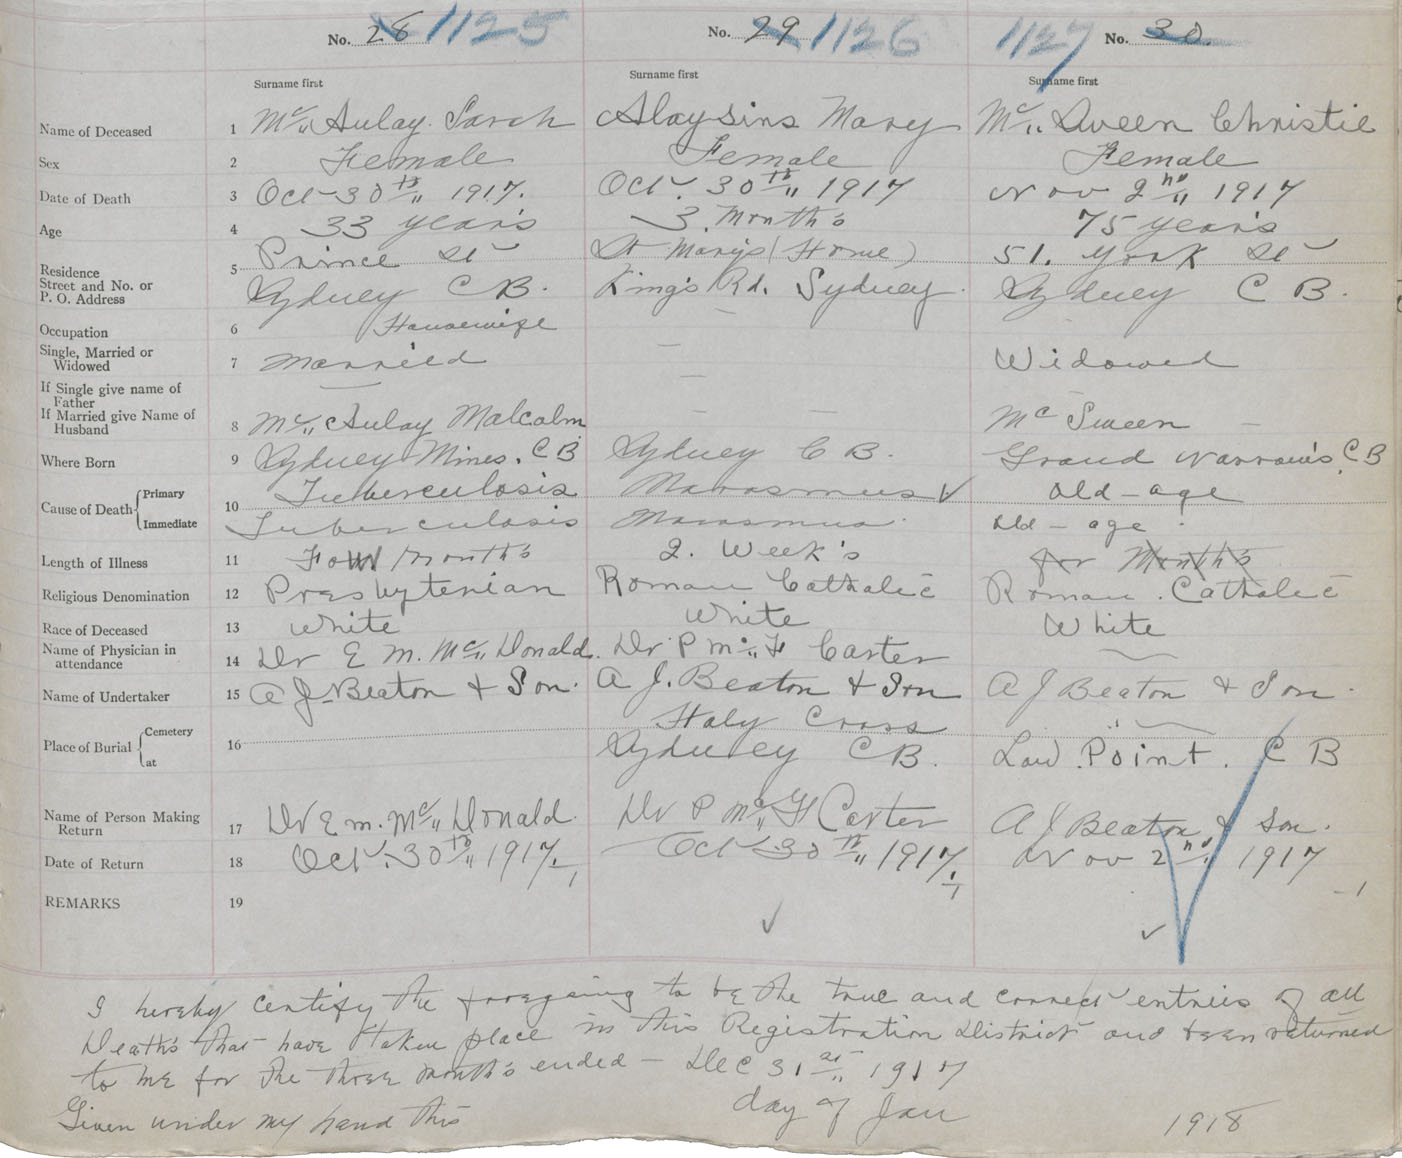 No. 28 1125 No. 29 1126 1127 No. 30
Surname first Surname first Surname first
Name of Deceased 1 Mc Aulay Sarah Aloysius Mary Mc Sween Christie
Sex 2 Female Female Female
Date of Death 3 Oct 30th 1917. Oct. 30th 1917 Nov 2nd 1917
Age 4 33 year's 3 Month's 75 year's
Residence Street and No. or P. O. Address 5 Prince St St Mary's (Home) 51. York St
Sydney C B. King's Rd. Sydney. Sydney C B.
Occupation 6 Housewife —
Single, Married or Widowed 7 Married — Widowed
If Single give name of Father — —
If Married give Name of Husband 8 Mc Aulay Malcolm — — Mc Sween —
Where Born 9 Sydney Mines. C B Sydney C B. Grand Narrow's. C B
Cause of Death { Primary 10 Tuberculosis Marasmus ✓ Old-age
Immediate Tuberculosis Marasmus. Old-age.
Length of Illness 11 Four Month's 2. Week's for Month's
Religious Denomination 12 Presbyterian Roman Catholic Roman. Catholic
Race of Deceased 13 White White White
Name of Physician in attendance 14 Dr E M. Mc Donald. Dr P Mc F Carter
Name of Undertaker 15 A J Beaton & Son. A J. Beaton & Son A J Beaton & Son.
Place of Burial { Cemetery 16 Holy Cross "
at Sydney C B. Low Point. C B
Name of Person Making Return 17 Dr E M. Mc Donald. Dr P Mc F Carter A J Beaton & Son.
Date of Return 18 Oct. 30th 1917. Oct 30th 1917. Nov 2nd 1917
REMARKS 19 ✓ ✓
I hereby certify the foregoing to be the true and correct entries of all
Death's that have taken place in this Registration District and been returned
to me for the three month's ended — Dec 31st 1917
Given under my hand this day of Jan 1918